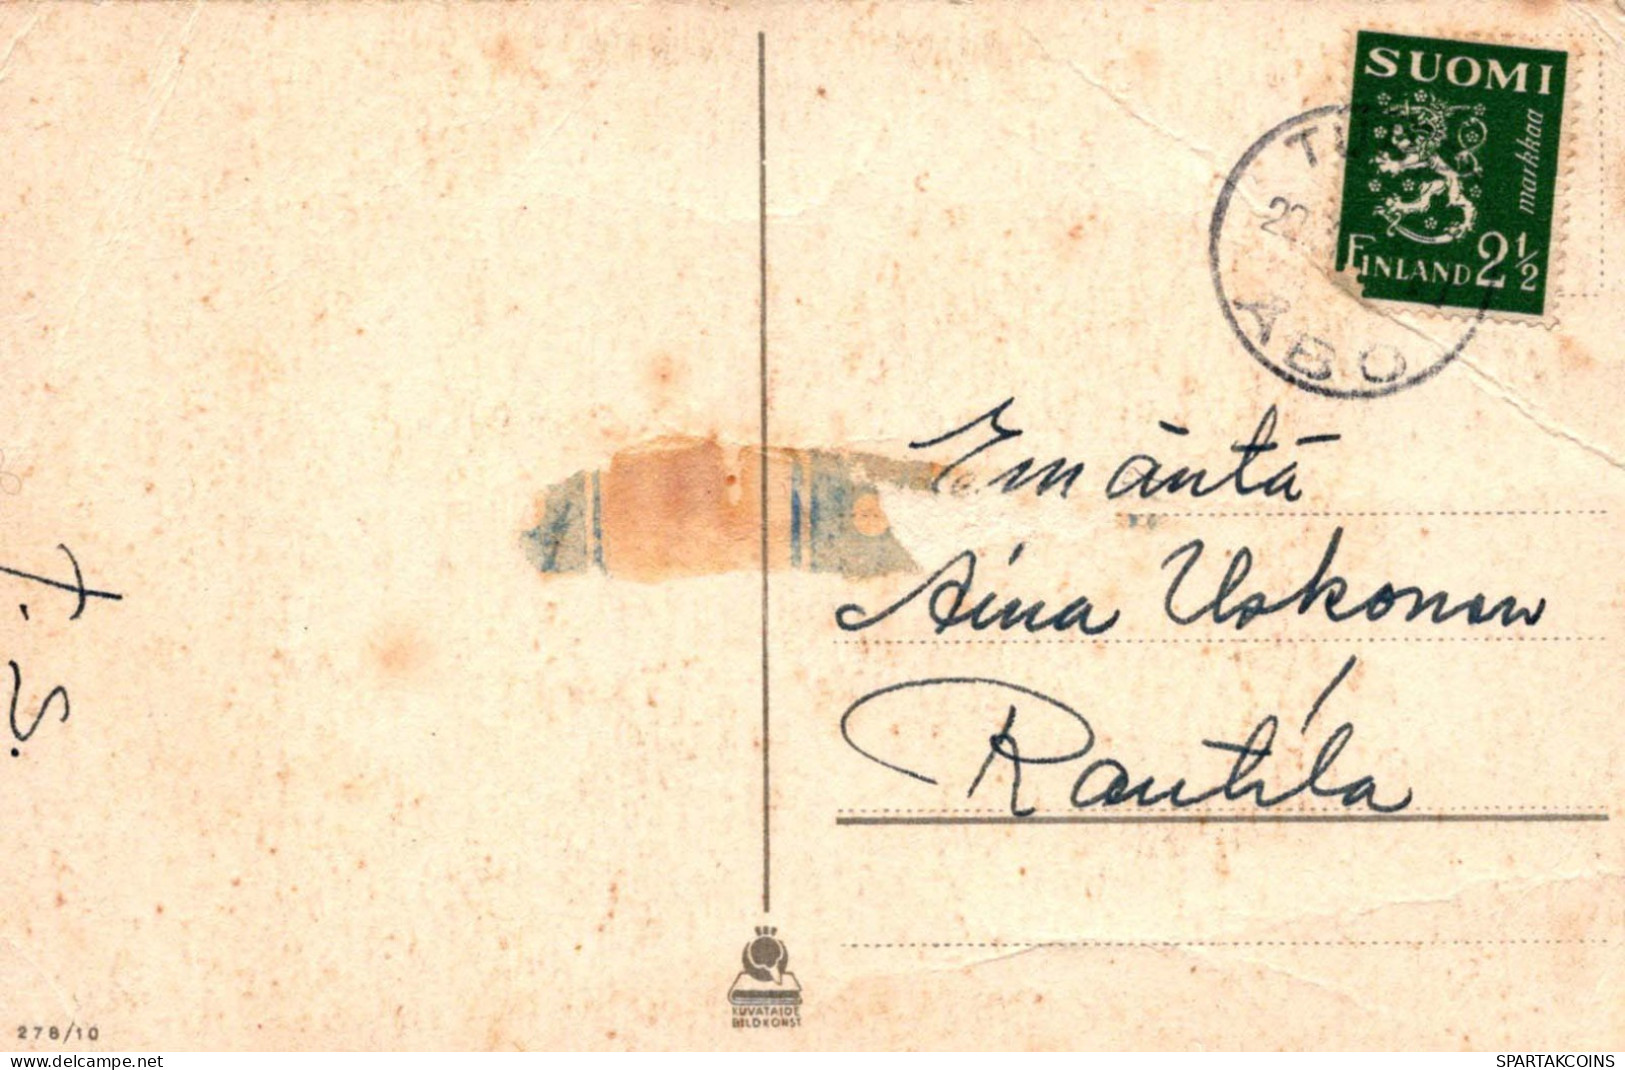 SUOMI
markkaa
FINLAND 2½
TU
ÅBO
Emäntä
Aina Uskonen
Rautila
KUVATAIDE
BILDKONST
278/10
www.delcampe.net
SPARTAKCOINS